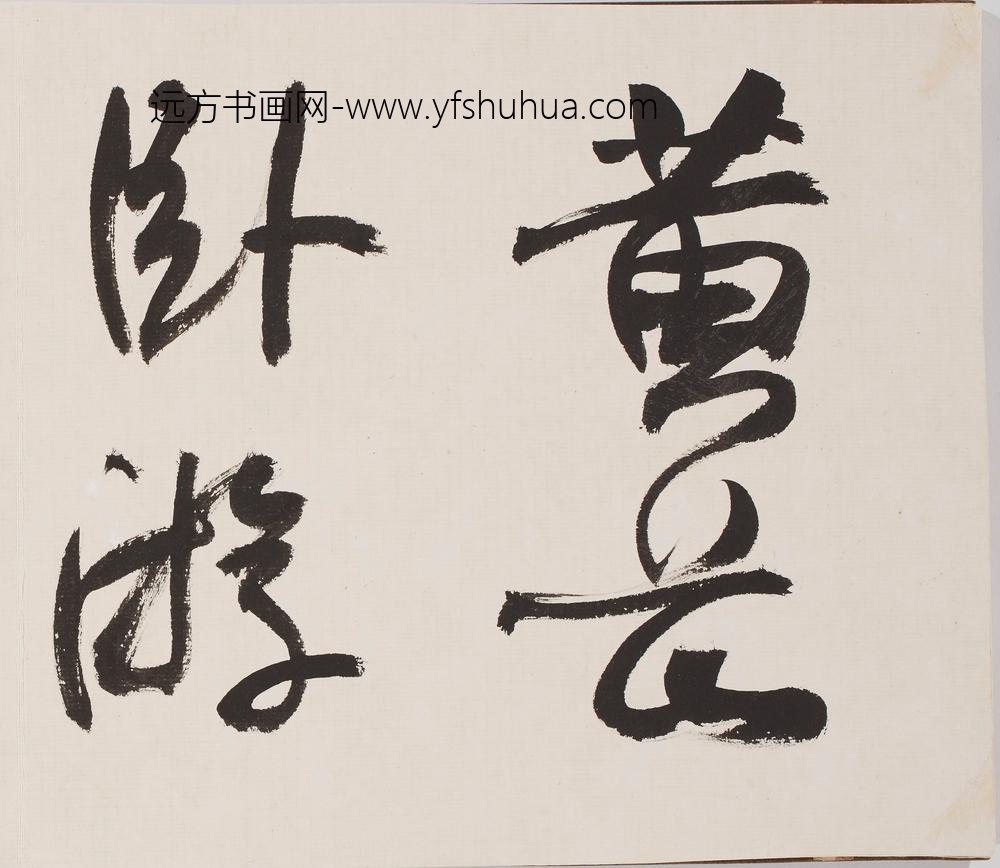 黄岳
卧游
远方书画网-www.yfshuhua.com